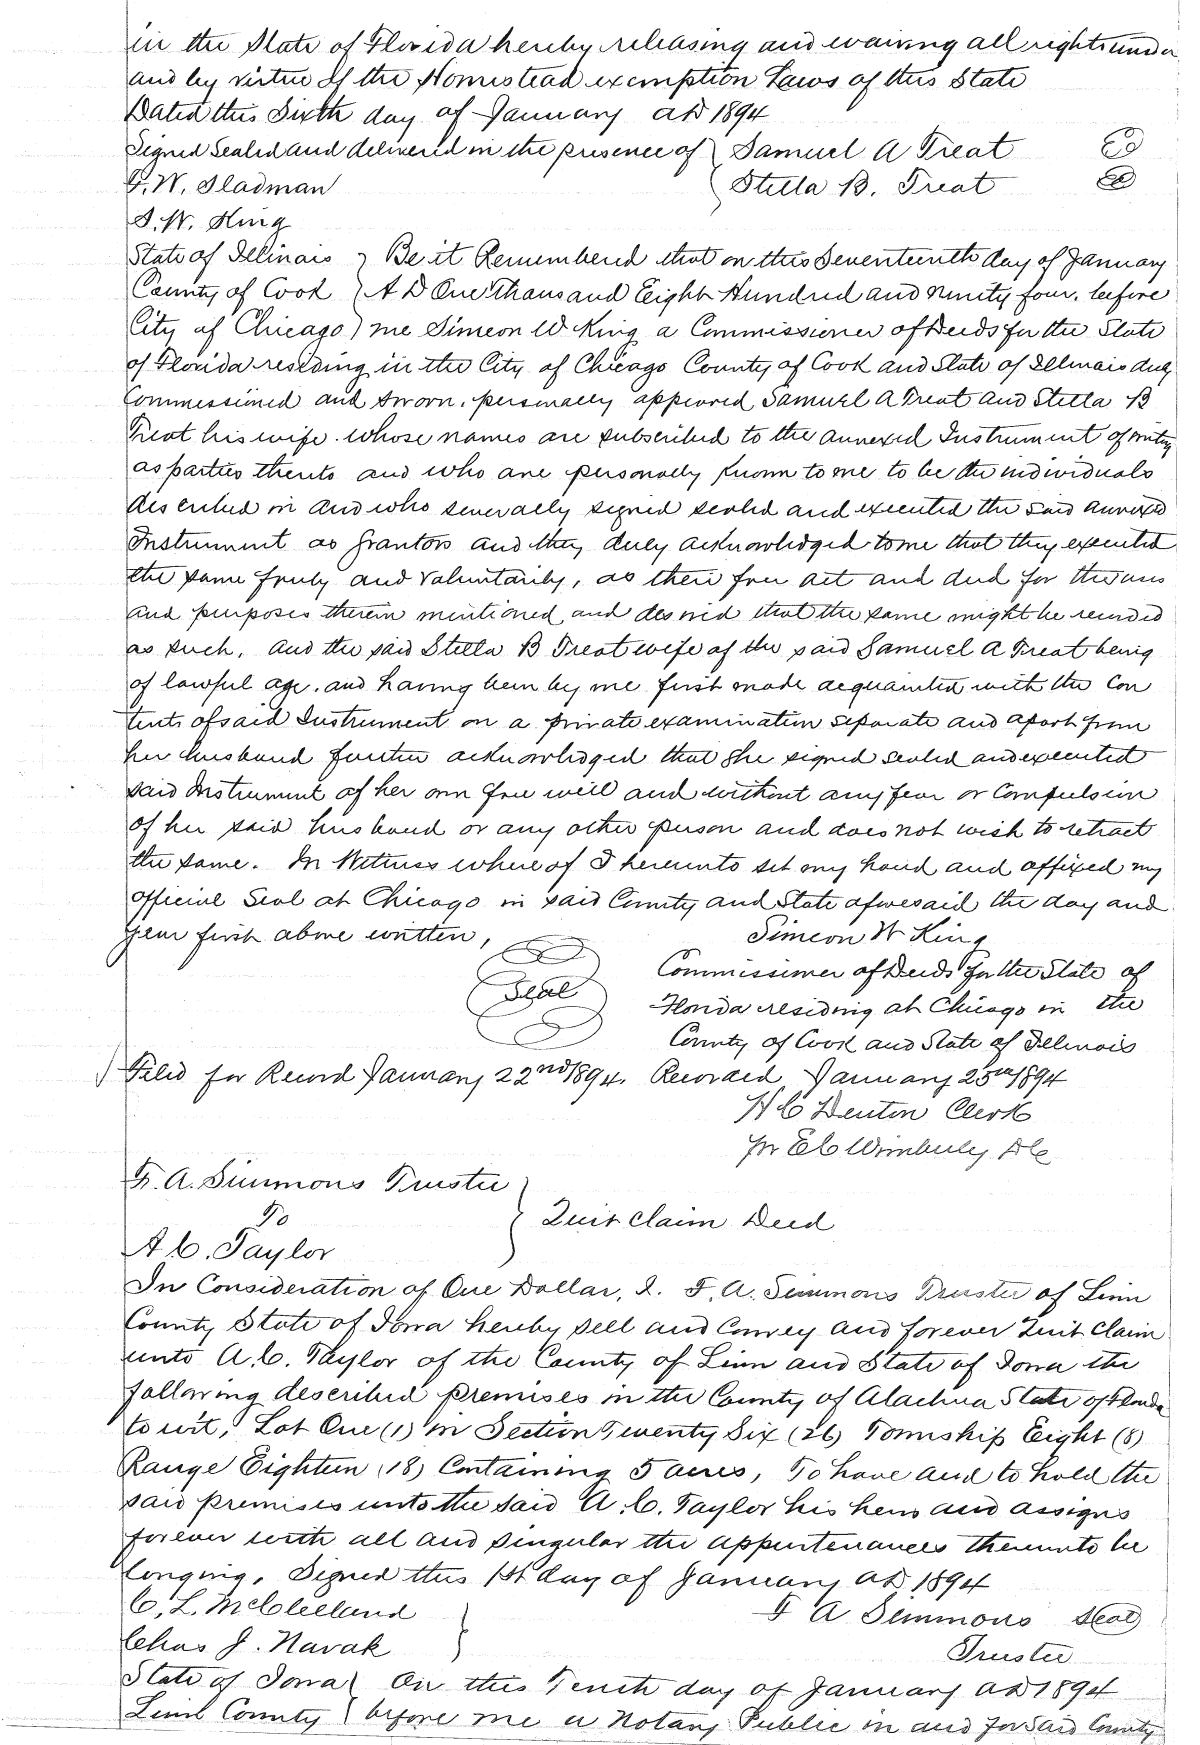 in the State of Florida hereby releasing and waiving all rights under
and by virtue of the Homestead exemption Laws of this State
Dated this Sixth day of January AD 1894
Signed Sealed and delivered in the presence of Samuel A Treat
G. W. Stadman Stella B. Treat
S. W. King
State of Illinois Be it Remembered that on this Seventeenth day of January
County of Cook A D One Thousand Eight Hundred and Ninety four. before
City of Chicago me Simeon W King a Commissioner of Deeds for the State
of Florida residing in the City of Chicago County of Cook and State of Illinois duly
Commissioned and sworn. personally appeared Samuel A Treat and Stella B
Treat his wife. whose names are subscribed to the annexed Instrument of writing
as parties thereto and who are personally known to me to be the individuals
described in and who severally signed sealed and executed the said annexed
Instrument as grantors and they duly acknowledged to me that they executed
the same freely and voluntarily, as their free act and deed for the uses
and purposes therein mentioned and desired that the same might be recorded
as such. And the said Stella B Treat wife of the said Samuel A Treat being
of lawful age. and having been by me first made acquainted with the Con
tents of said Instrument on a private examination separate and apart from
her husband further acknowledged that she signed sealed and executed
said Instrument of her own free will and without any fear or Compulsion
of her said husband or any other person and does not wish to retract
the same. In Witness where of I hereunto set my hand and affixed my
official Seal at Chicago in said County and State aforesaid the day and
year first above written, Simeon W King
Seal Commissioner of Deeds for the State of
Florida residing at Chicago in the
County of Cook and State of Illinois
Filed for Record January 22nd 1894. Recorded January 25th 1894
H C Denton Clerk
pr E C Wimberly D C
F. A. Simmons Trustee
To Quit Claim Deed
A C. Taylor
In Consideration of One Dollar, I. F. A. Simmons Trustee of Linn
County State of Iowa hereby sell and Convey and forever Quit Claim
unto A. C. Taylor of the County of Linn and State of Iowa the
following described premises in the County of Alachua State of Florida
to wit, Lot One (1) in Section Twenty Six (26) Township Eight (8)
Range Eighteen (18) Containing 5 acres, To have and to hold the
said premises unto the said A. C. Taylor his heirs and assigns
forever with all and singular the appurtenances thereunto be
longing. Signed this 1st day of January AD. 1894
C. L. McClelland F A Simmons Seal
Chas J. Navak Trustee
State of Iowa On this Tenth day of January AD 1894
Linn County before me a Notary Public in and for said County